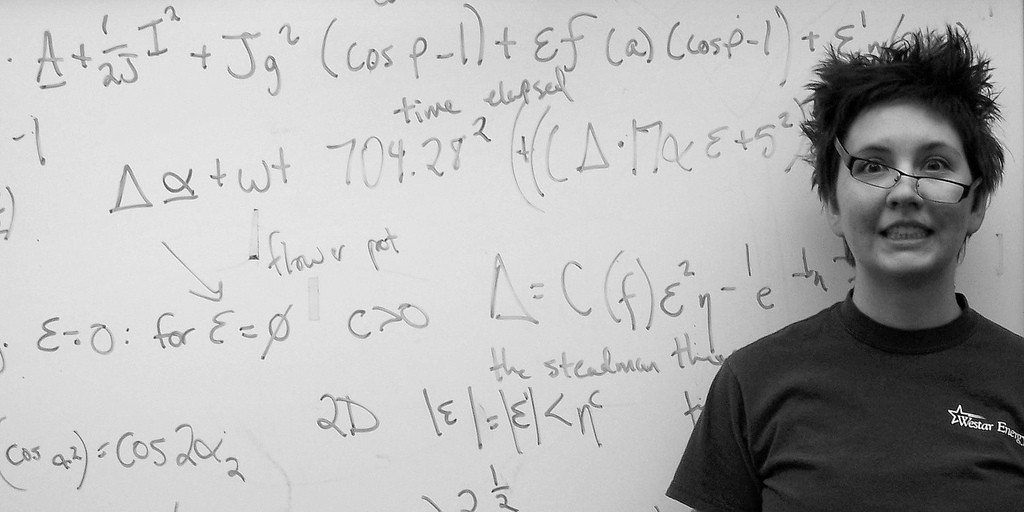 · A + 1/2J I² + Jg² (cos p -1) + εf (a) (cos p -1) + ε'
time elapsed
-1
Δ α + ωt 704.28² + ((Δ·17α ε + 5²
flower pot
Δ = C (f) ε² η - 1 e
ε = 0 : for ε = ∅ c > 0
the steadman
2D |ε| = |ε| < η^c
(cos α²) = cos 2α₂
2 1/2
Westar Energy